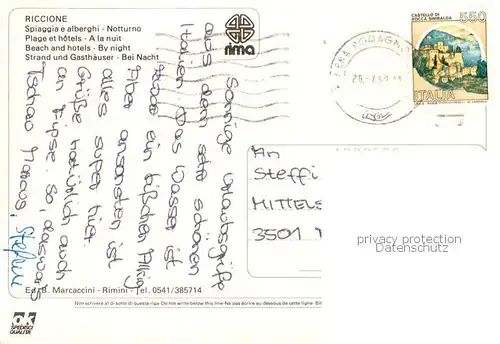 RICCIONE
Spiaggia e alberghi - Notturno
Plage et hôtels - A la nuit
Beach and hotels - By night
Strand und Gasthäuser - Bei Nacht
rima
CASTELLO DI
ROCCA SINIBALDA
550
ITALIA
Sonnige Urlaubsgrüße
aus dem sehr schönen
Italien. Das Wasser ist
ein bißchen
Aber ansonsten ist
alles super hier.
Grüße natürlich auch
an So, das war's
Tschao Marcos,
Stefani
An
Steffi
MITTELS
3501
privacy protection
Datenschutz
Ed. B. Marcaccini - Rimini - Tel. 0541/385714
Non scrivere al di sotto di questa riga-Do not write below this line-Ne pas écrire au dessous de cette ligne-
OK
SPEDISCI
QUALITA'